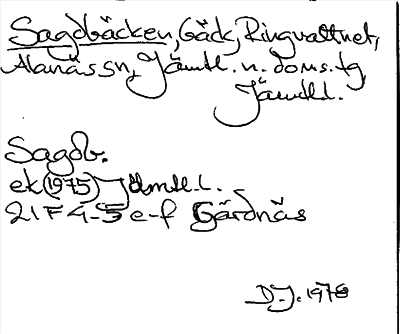 Sagdbäcken, bäck, Ringvattnet,
Alanäs sn, Jämtl. n. doms. tg,
Jämtl.
Sagdb.
ek (1975) Jämtl. l.
21 F 4-5 e-f Gärdnäs
D.J. 1978